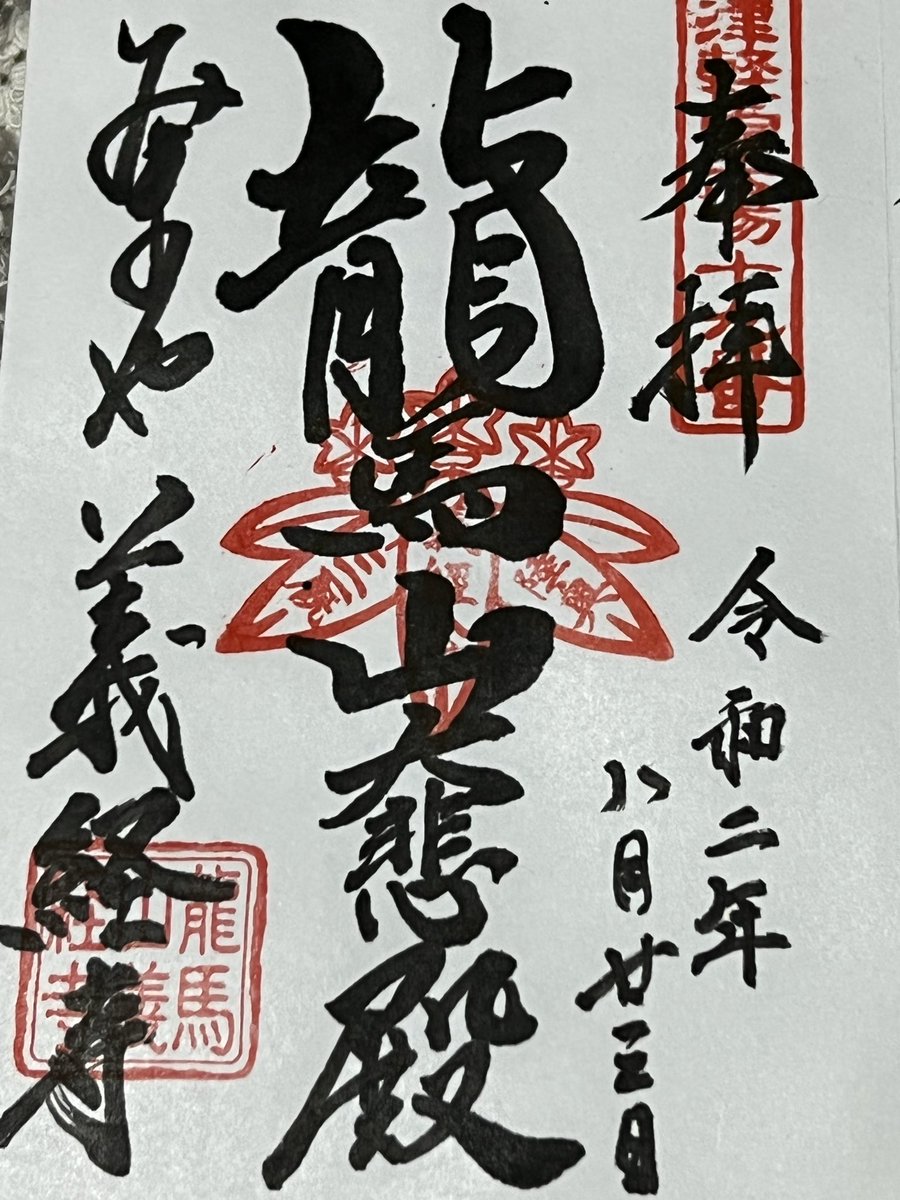 奉拝
令和二年
八月廿三日
龍馬山大悲殿
義経寺
龍馬
山義
経寺